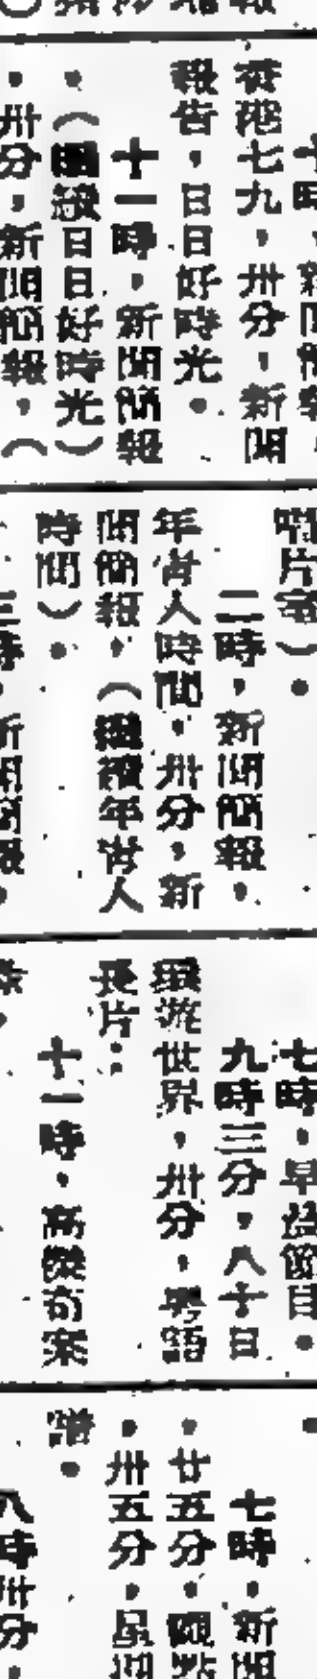 香港七九，卅分，新聞
報告，日日好時光。
十一時，新聞簡報
。（繼續日日好時光）
。卅分，新聞簡報，（
唱片室）。
二時，新聞簡報，
年青人時間，卅分，新
聞簡報，（繼續年青人
時間）。
三時，新聞簡報，
七時，早晨節目。
九時三分，八十日
環遊世界，卅分，粵語
長片：
十一時，高傑奇案
七時，新聞
。廿五分，觀點
。卅五分，星迎
譜。
八時卅分，